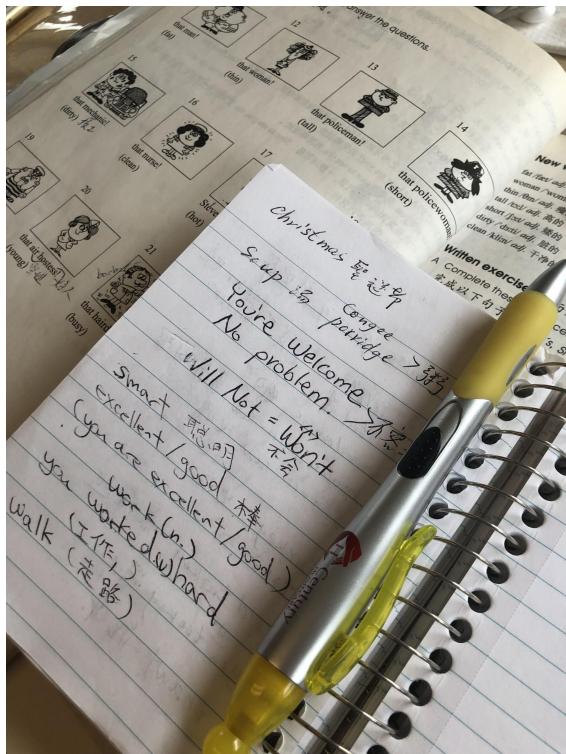 Answer the questions.
that man!
(fat)
12
that woman!
(thin)
13
that policeman!
(tall)
14
that policewoman
(short)
15
that mechanic!
(dirty)
16
that nurse!
(clean)
17
Steve
(hot)
19
(young)
20
that air hostess
(busy)
21
that haird
New w
fat /fæt/ adj.
woman /wum
thin /θɪn/ adj.
tall /tɔ:l/ adj. 高的
short /ʃɔ:t/ adj. 矮的
dirty /'dɜ:ti/ adj. 脏的
clean /kli:n/ adj. 干净
Written exercise
A Complete these
完成以下句子
Christmas 圣诞节
Soup 汤 congee
porridge > 粥
You're Welcome
No problem. > 不客
Will Not = Won't
不会
Smart 聪明
excellent/good 棒
(you are excellent/good)
work (n.)
you worked(v) hard
(工作)
walk (走路)
Century